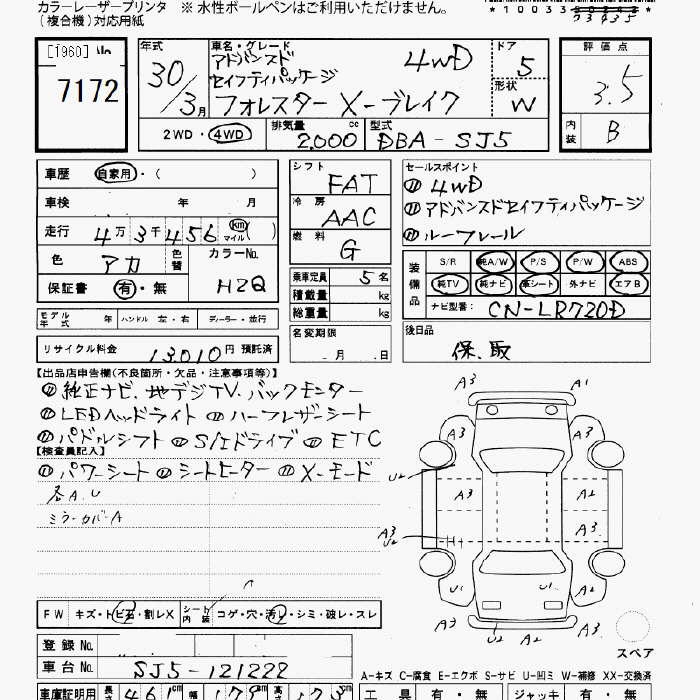 カラーレーザープリンタ ※ 水性ボールペンはご利用いただけません。
(複合機)対応用紙
[1960]
7172
年式
30/3月
車名・グレード
アドバンスド
セイフティパッケージ
4WD
フォレスター X-ブレイク
ドア
5
形状
W
2WD・4WD
排気量
2,000 cc
型式
DBA-SJ5
評価点
3.5
内装
B
車歴 自家用・( )
車検 年 月
走行 4万3千456 km マイル ( )
色 アカ 色替
カラーNo.
H2Q
保証書 有・無
モデル年式 年 ハンドル 左・右 ディーラー・並行
リサイクル料金 13,010円 預託済
シフト
FAT
冷房
AAC
燃料
G
乗車定員 5名
積載量 kg
総重量 kg
名変期限
月 日
セールスポイント
⑪ 4WD
⑪ アドバンスドセイフティパッケージ
⑪ ルーフレール
装備品
S/R 純A/W P/S P/W ABS
純TV 純ナビ 革シート 外ナビ エアB
ナビ型番: CN-LR720D
後日品
保、取
【出品店申告欄(不良箇所・欠品・注意事項等)】
⑪ 純正ナビ、地デジTV、バックモニター
⑪ LEDヘッドライト ⑪ ハーフレザーシート
⑪ パドルシフト ⑪ S/Iドライブ ⑪ ETC
【検査員記入】
⑪ パワーシート ⑪ シートヒーター ⑪ X-モード
各A.U
ミラーカバーA
FW キズ・トビ石・割レX
シート内装 コゲ・穴・汚レ・シミ・破レ・スレ
登録No.
車台No. SJ5-121222
車庫証明用 長さ 461cm 幅 179cm 高さ 173cm
A3 A1
A3 A3
U2
A3 A2
A3 U2
A3
U1 U1
U2 A2 A3
スペア
A-キズ C-腐食 E-エクボ S-サビ U-凹ミ W-補修 XX-交換済
工具 有・無 ジャッキ 有・無